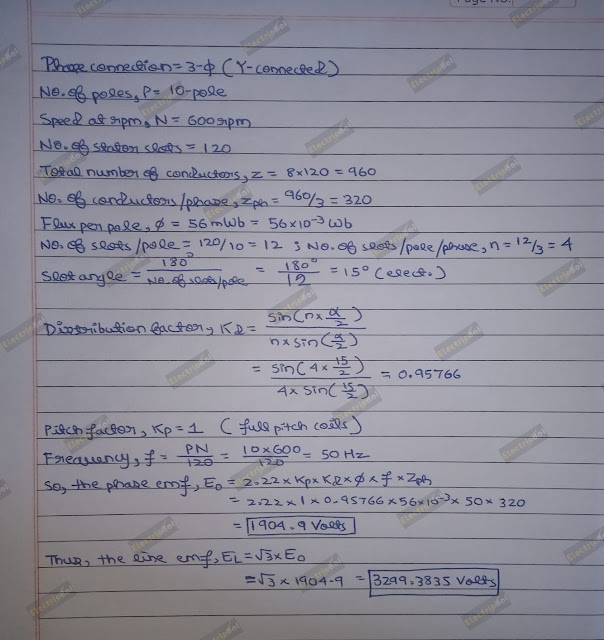 Page No.
Phase connection = 3-ϕ (Y-connected)
No. of poles, P = 10-pole
Speed at rpm, N = 600 rpm
No. of stator slots = 120
Total number of conductors, z = 8×120 = 960
No. of conductors/phase, zph = 960/3 = 320
Flux per pole, ϕ = 56 mWb = 56×10⁻³ Wb
No. of slots/pole = 120/10 = 12 ; No. of slots/pole/phase, n = 12/3 = 4
Slot angle = 180°/No. of slots/pole = 180°/12 = 15° (elect.)
Distribution factor, Kd = sin(n×α/2)/n×sin(α/2)
= sin(4×15/2)/4×sin(15/2) = 0.95766
Pitch factor, Kp = 1 (full pitch coils)
Frequency, f = PN/120 = 10×600/120 = 50 Hz
So, the phase emf, E₀ = 2.22×Kp×Kd×ϕ×f×Zph
= 2.22×1×0.95766×56×10⁻³×50×320
= 1904.9 Volts
Thus, the line emf, EL = √3×E₀
= √3×1904.9 = 3299.3835 Volts